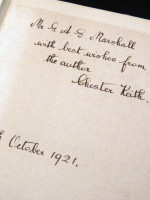 Mr G A G Marshall
with best wishes from
the author
Chester Keith.
October 1921.